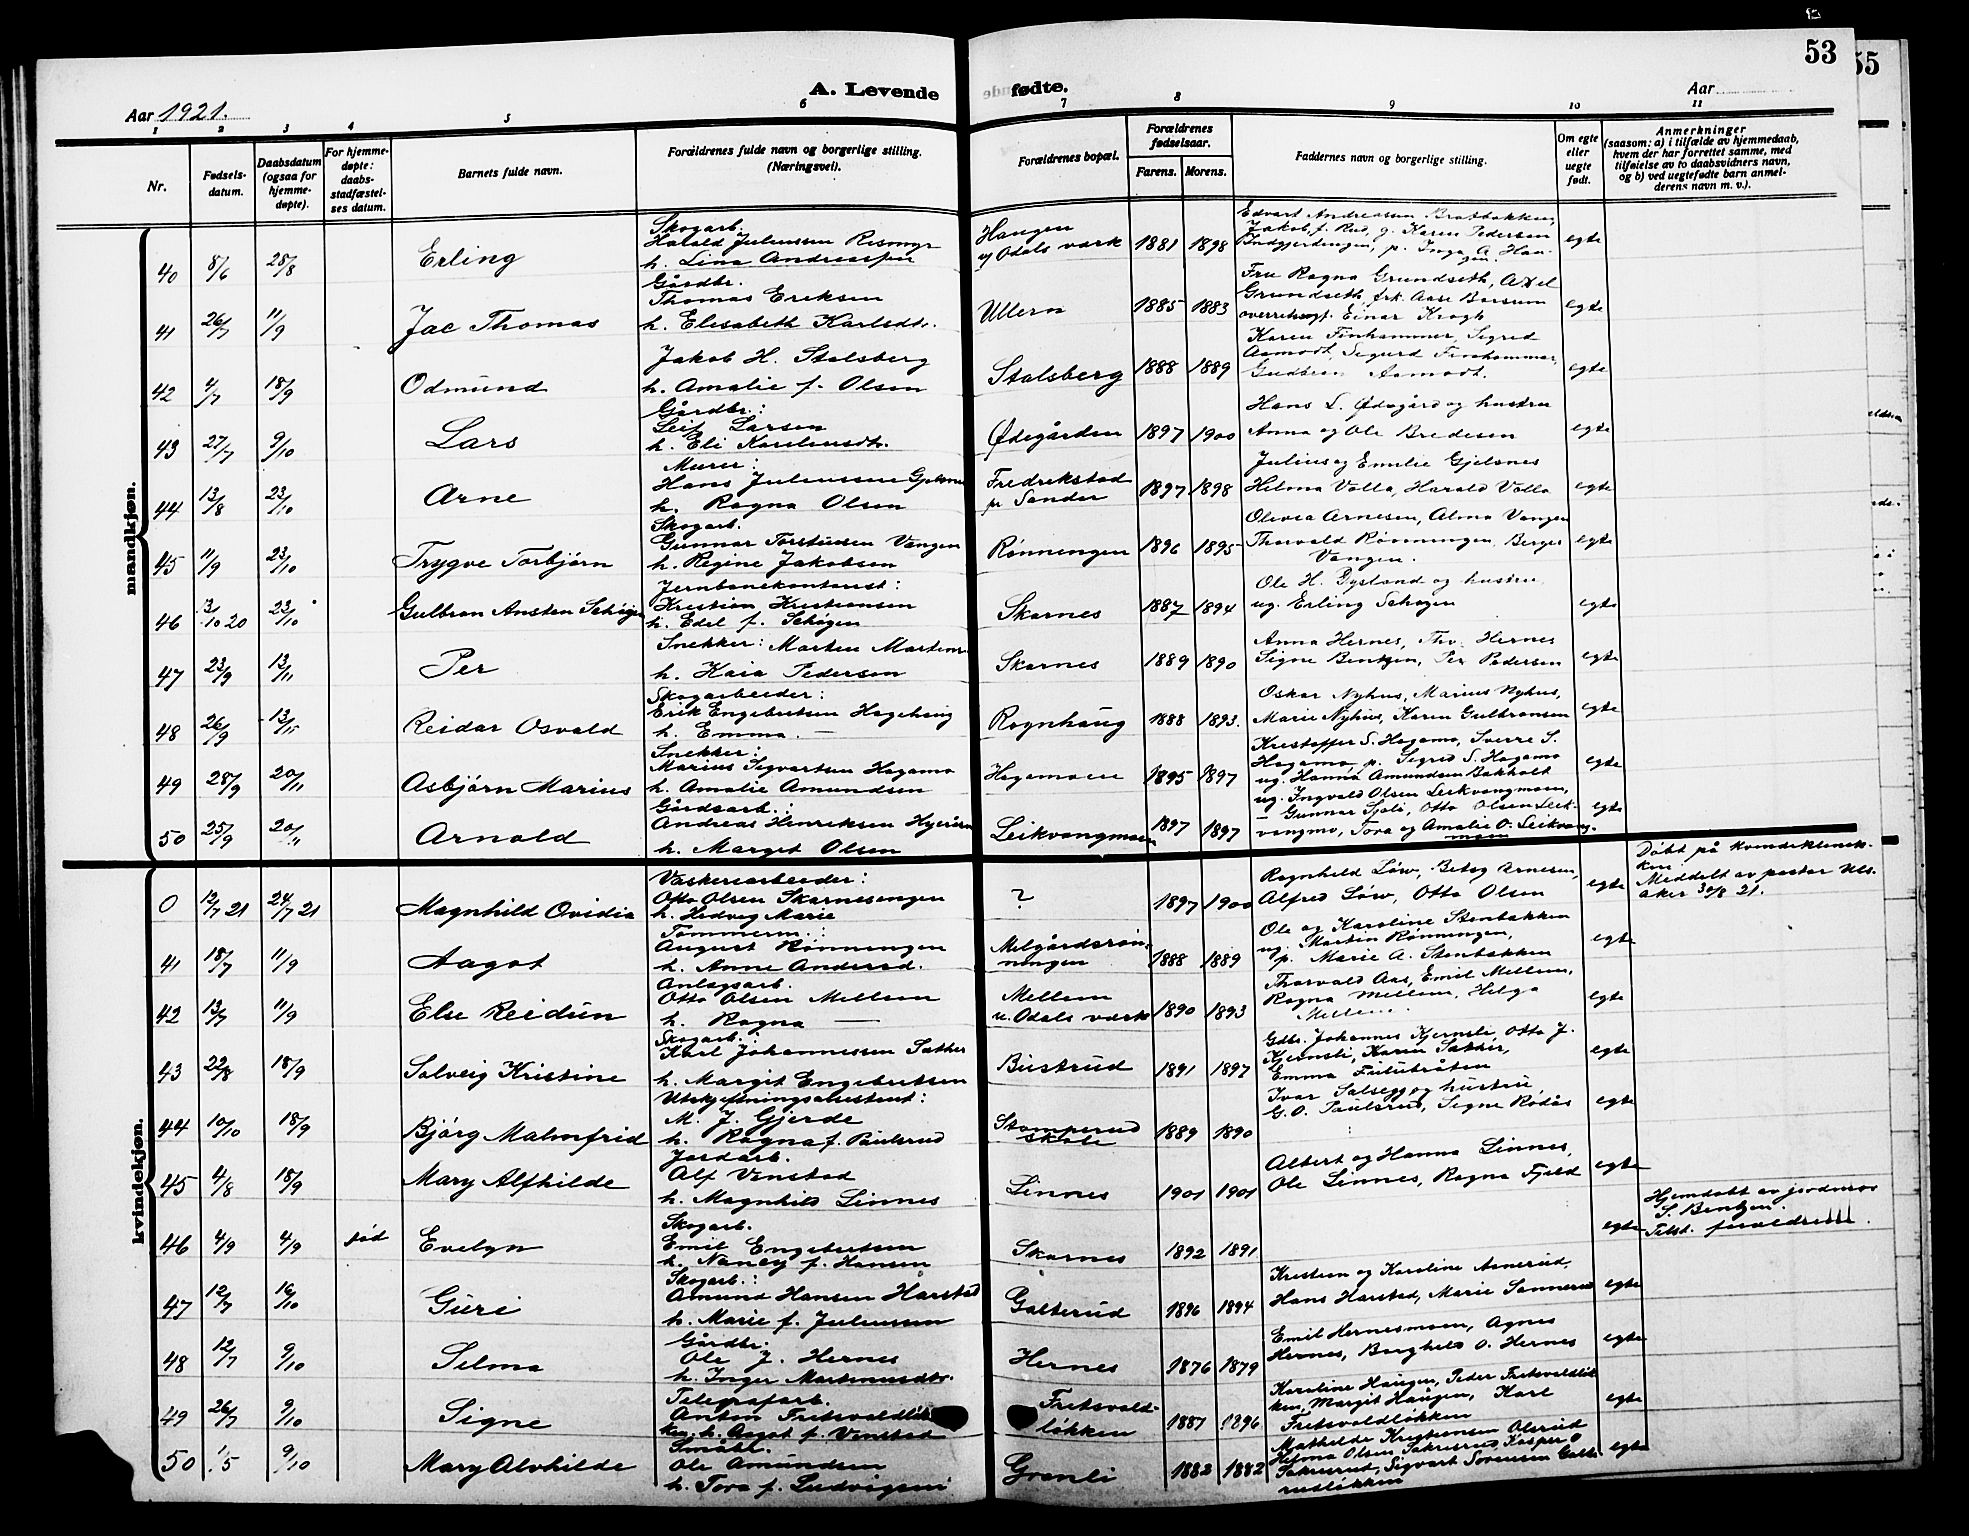 53
55
A. Levende fødte.
Aar 1921.
Aar
1 2 3 4 5 6 7 8 9 10 11
Nr.
Fødsels-
datum.
Daabsdatum
(ogsaa for
hjemme-
døpte).
For hjemme-
døpte:
daabs-
stadfæstel-
ses datum.
Barnets fulde navn.
Forældrenes fulde navn og borgerlige stilling.
(Næringsvei).
Forældrenes bopæl.
Forældrenes
fødselsaar.
Farens. Morens.
Faddernes navn og borgerlige stilling.
Om egte
eller
uegte
født.
Anmerkninger
(saasom: a) i tilfælde av hjemmedaab,
hvem der har forrettet samme, med
tilføielse av to daabsvidners navn,
og b) ved uegtefødte barn anmel-
derens navn m. v.).
mandkjøn.
40 8/6 28/8 Erling
Skogarb.
Harald Juliussen
h. Lina Andreassen
Haugen
v/ Odals værk 1881 1898
Edvart Andreassen Bratbakken,
Jakob f. Rud, g. Karen Pedersen
egte
41 26/7 11/9 Jac Thomas
Gårdbr.
Thomas Eriksen
h. Elisabeth Karlsdtr.
Ullern 1885 1883
Fru Ragna Grundseth, Axel
Grundseth, frk. Aase Borsum
overretssagf. Einar Krogh
egte
42 4/7 18/9 Odmund
Jakob H. Stalsberg
h. Amalie f. Olsen
Stalsberg 1888 1889
Karen Finhammer, Sigrid
Aamodt, Sigurd Finhammer,
Gudbrun Aamodt.
egte
43 27/7 9/10 Lars
Gårdbr.:
Leif Larsen
h. Eli Karelausdtr.
Ødegården 1897 1900
Hans L. Ødegård og hustru
Anna og Ole Bredesen
egte
44 13/8 23/10 Arne
Murer:
Hans Juliussen Gjelsnes
h. Ragna Olsen
Fredrikstad
pr Sander 1897 1898
Julius og Emilie Gjelsnes
Helma Volla, Harald Volla
egte
45 11/9 23/10 Trygve Torbjørn
Skogarb.
Gunnar Torstensen Vangen
h. Regine Jakobsen
Rønningen 1896 1895
Olivia Arnesen, Alma Vangen
Thorvald Rønningen, Berger
Vangen.
egte
46 3/10 20 23/10 Gulbran Ansten Schøgen
Jernbanekontorist:
Kristian Kristiansen
h. Edel f. Schøgen
Skarnes 1887 1894
Ole H. Dystand og hustru
ug. Erling Schøgen
egte
47 23/9 13/11 Per
Snekker: Morten Martens
h. Kaia Pedersen
Skarnes 1889 1890
Anna Hernes, Thv. Hernes
Signe Bentzen, Per Pedersen
egte
48 26/9 13/11 Reidar Osvald
Skogarbeider:
Erik Engebretsen Hagehaug
h. Emma —
Rognhaug 1888 1893.
Oskar Nyhus, Marius Nyhus,
Marie Nyhus, Karen Gulbransen
egte
49 28/9 20/11 Asbjørn Marius
Snekker:
Marius Sigvartsen Hagamo
h. Amalie Amundsen
Hagamoen 1895 1897
Kristoffer S. Hagamo, Sverre S.
Hagamo, p. Sigrid S. Hagamo
ug. Hanna Amundsen Bakholt
egte
50 25/9 20/11 Arnold
Gårdsarb.:
Andreas Henriksen
h. Margit Olsen
Leikvangmoen 1897 1897
ug. Ingvald Olsen Leikvangmoen,
— Gunnar Sjøli, Otto Olsen Leik-
vangmo, Tora og Amalie O. Leikvang-
moen
egte
kvindekjøn.
0 12/7 21 24/7 21 Magnhild Ovidia
Væskeriarbeider:
Otto Olsen Skarnesengen
h. Hedvig Marie
? 1897 1900
Ragnhild Løw, Betsy Arnesen,
Alfred Løw, Otto Olsen
egte
Døbt på kvindeklinik-
ken
Meddelt av pastor Uls-
aker 30/8 21.
41 18/7 11/9 Aagot
Tømmerm.:
August Rønningen
h. Anne Andersd.
Melgårdsrøn-
ningen 1888 1889
Ole og Karoline Stenbakken
ug. Martin Rønningen,
p. Marie A. Stenbakken
egte
42 13/7 11/9 Else Reidun
Anlægsarb.
Otto Olsen Mellem
h. Ragna —
Mellem
v. Odals værk 1890 1893
Thorvald Aas, Emil Mellem,
Ragna Mellem, Helga
Mellem.
egte
43 22/8 18/9 Solveig Kristine
Skogarb.:
Karl Johannessen Sæther
h. Margit Engebretsen
Bustrud 1891 1897
Gdbr. Johannes Kjernsli, Otto J.
Kjernsli, Karen Sæther,
Emma
egte
44 10/10 18/9 Bjørg Malmfrid
Utskiftningsassistent:
M. J. Gjerde
h. Ragna f. Paulsrud
Stomperud
skole 1889 1890
Ivar Salsegg og hustru,
G. O. Paulsrud, Signe Rodås
egte
45 4/8 18/9 Mary Alfhilde
Jordarb.
Alf Venstad
h. Magnhild Linnes
Linnes 1901 1901
Albert og Hanna Linnes,
Ole Linnes, Ragna Fjeld
egte
46 4/9 4/9 død Evelyn
Skogarb.
Emil Engebretsen
h. Nancy f. Hansen
Skarnes 1892 1891
egte
Hjemdøbt av jordmor
S. Bentzen.
Tilst. forældrene.
47 12/7 16/10 Guri
Skogarb.:
Amund Hansen Harstad
h. Marie f. Juliussen
Galterud 1896 1894
Kristian og Karoline Asnerud,
Hans Harstad, Marie Sannerud
egte
48 12/7 9/10 Selma
Gårdbr.:
Ole J. Hernes
h. Inger Martinusdtr.
Hernes 1876 1879
Emil Hernesmoen, Agnes
Hernes, Borghild O. Hernes
egte
49 26/7 9/10 Signe
Telegrafarb.
Anton Fritsvoldløk-
ken h. Aagot f. Venstad
Fritsvold-
løkken 1887 1896
Karoline Haugen, Peder Fritsvoldløk-
ken, Margit Haugen, Karl
Fritsvoldløkken
egte
50 1/5 9/10 Mary Alvhilde
Småbr.
Ole Amundsen
h. Tora f. Ludvigsen
Granli 1882 1882
Mathilde Kristiansen Olerud
Helma Olsen Sakrisrud Kasper O
Sakrisrud, Sigvart Sørensen Galte-
rudløkken
egte